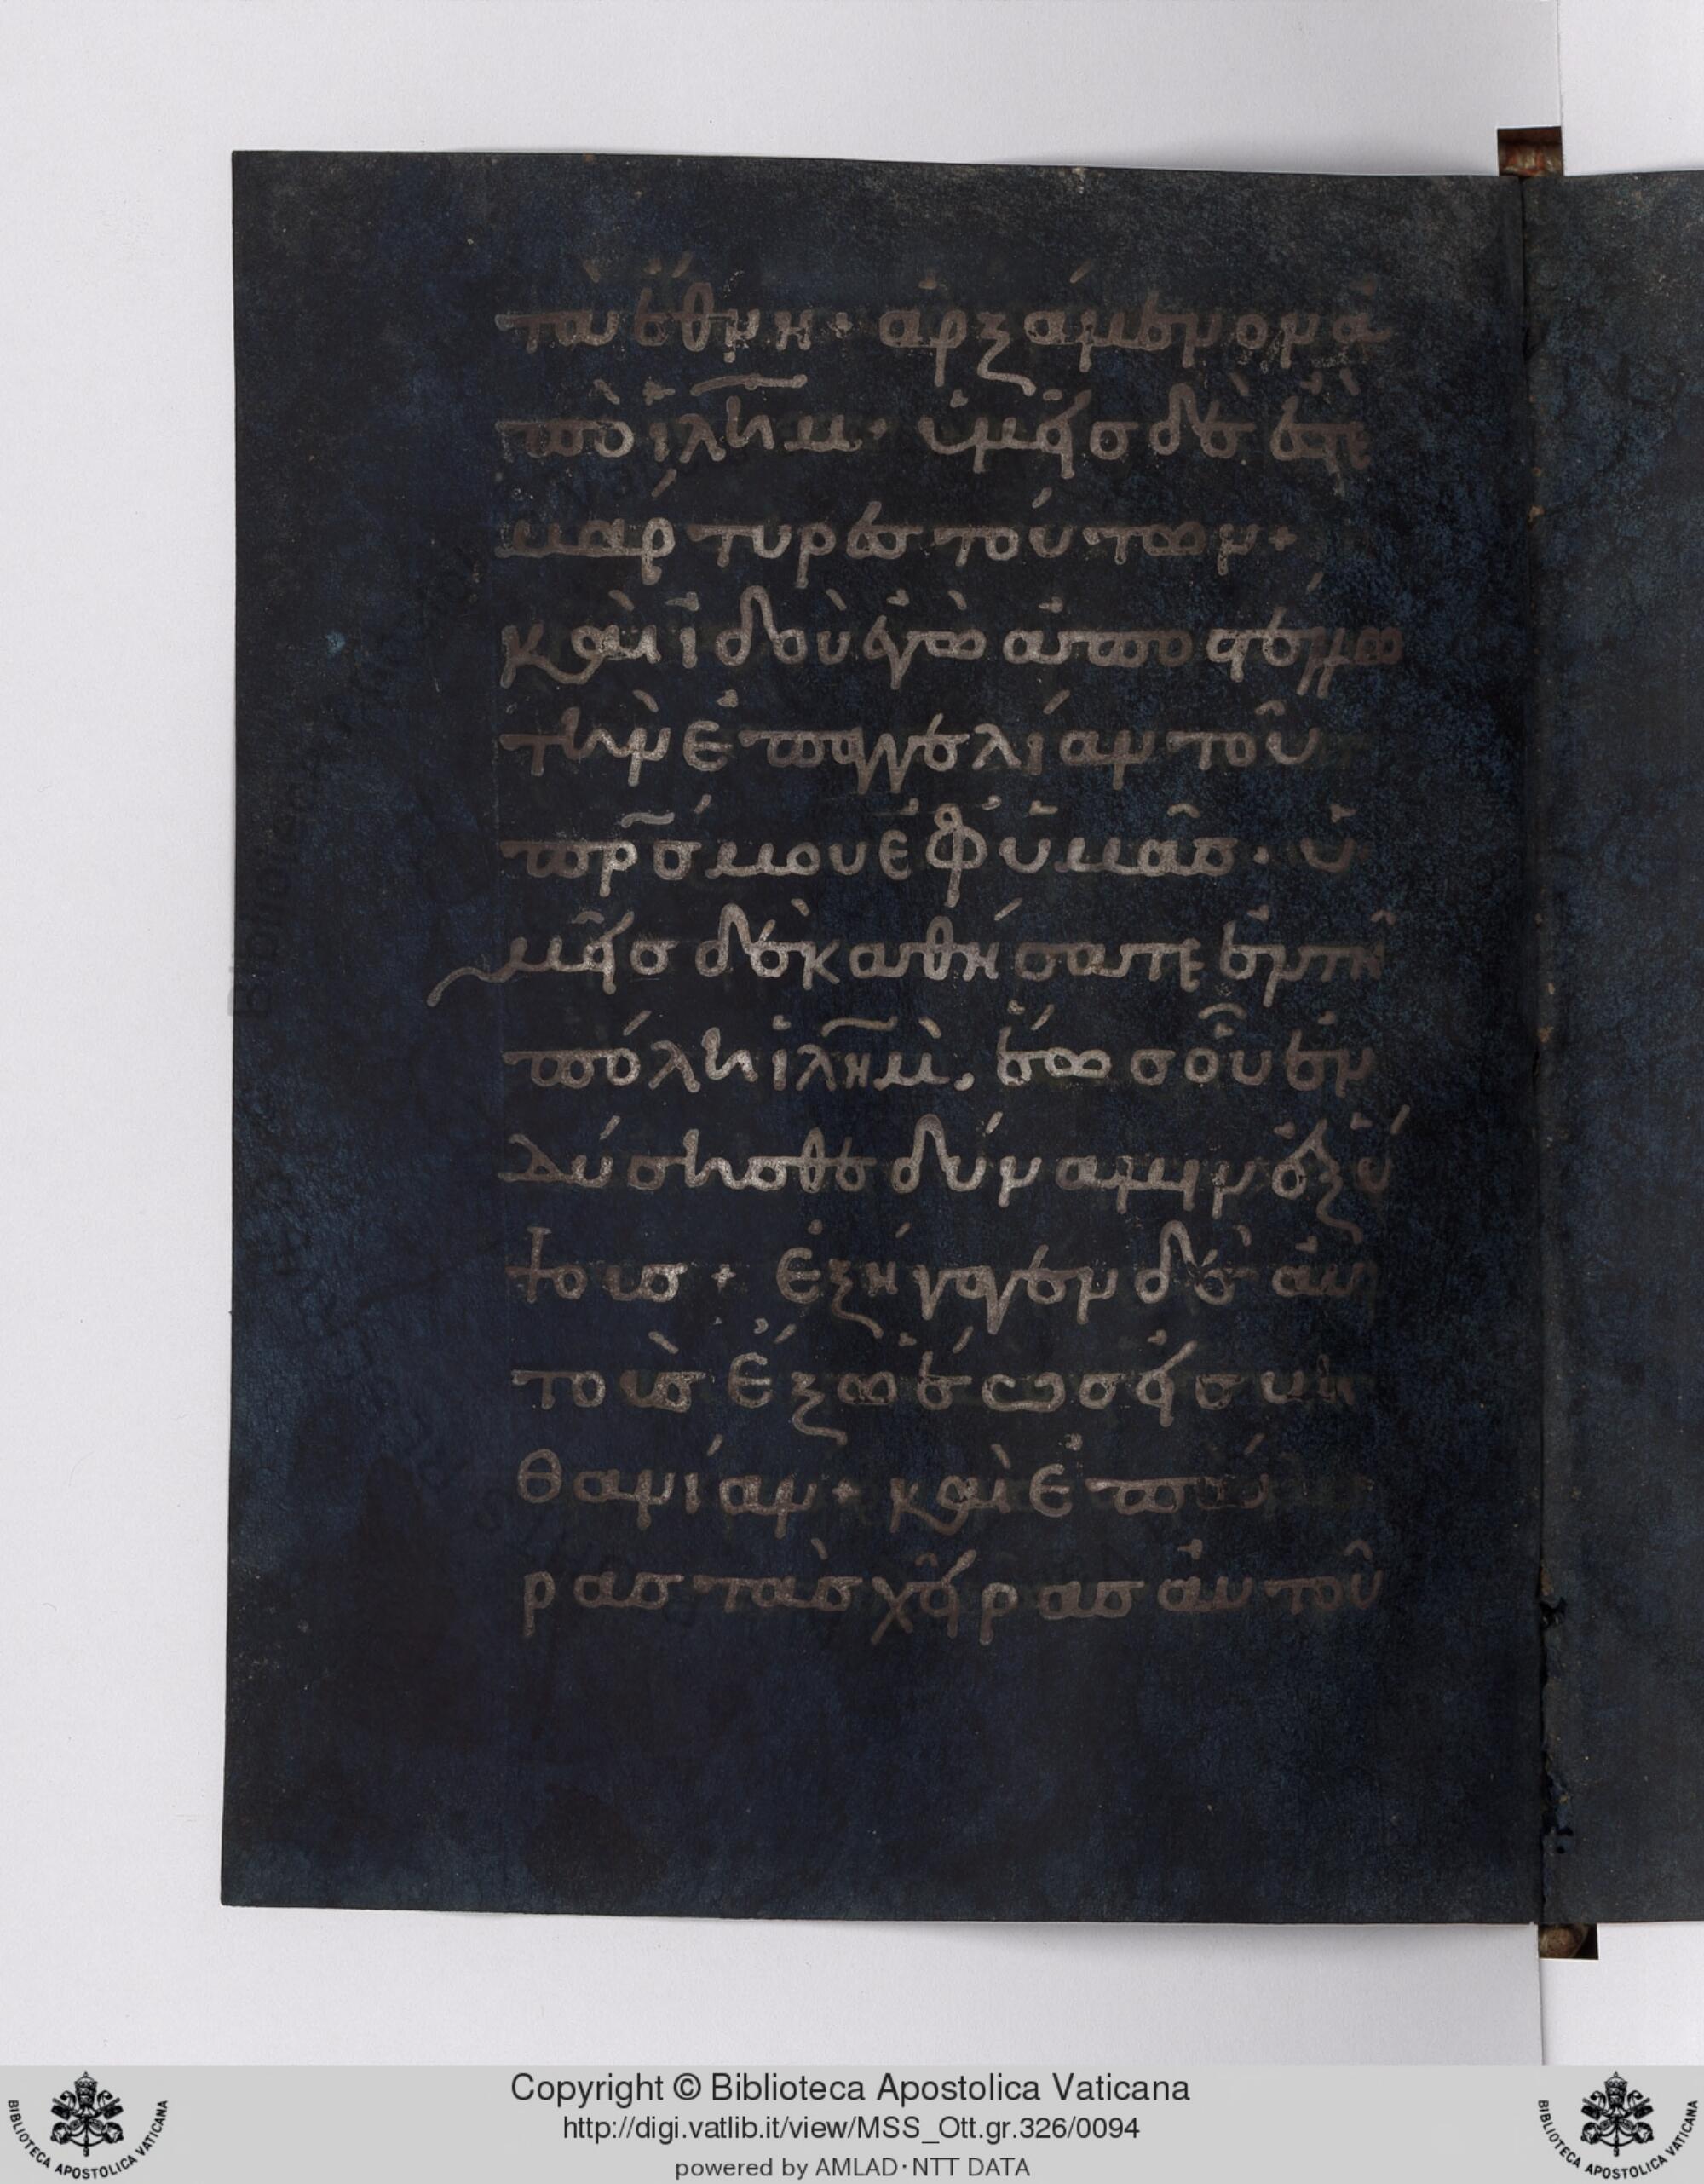 τὰ ἔθνη + ἀρξάμενον ἀ
πὸ ἰλῆμ · ὑμεῖσ δὲ ἐστε
μάρτυρεσ τούτων +
καὶ ἰδοὺ ἐγὼ ἀποστέλλω
τὴν ἐπαγγελίαν τοῦ
πρσ μου ἐφ ὑμᾶσ · ὑ
μεῖσ δὲ καθήσατε ἐν τῆ
πόλει ἰλῆμ, ἕωσ οὗ ἐν
δύσησθε δύναμιν ἐξ ὕ
ψουσ + ἐξήγαγεν δὲ αὐ
τοὺσ ἔξω ἕωσ εἰσ βη
θανίαν + καὶ ἐπά
ρασ τὰσ χεῖρασ αὐτοῦ
Copyright © Biblioteca Apostolica Vaticana
http://digi.vatlib.it/view/MSS_Ott.gr.326/0094
powered by AMLAD·NTT DATA
BIBLIOTECA APOSTOLICA VATICANA
BIBLIOTECA APOSTOLICA VATICANA